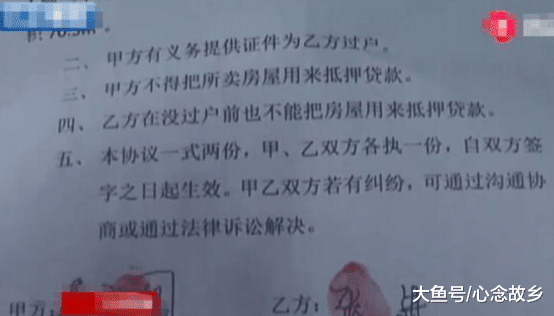 积70.5m²。
二、甲方有义务提供证件为乙方过户。
三、甲方不得把所卖房屋用来抵押贷款。
四、乙方在没过户前也不能把房屋用来抵押贷款。
五、本协议一式两份，甲、乙双方各执一份，自双方签
字之日起生效。甲乙双方若有纠纷，可通过沟通协
商或通过法律诉讼解决。
甲方：
乙方：
大鱼号/心念故乡